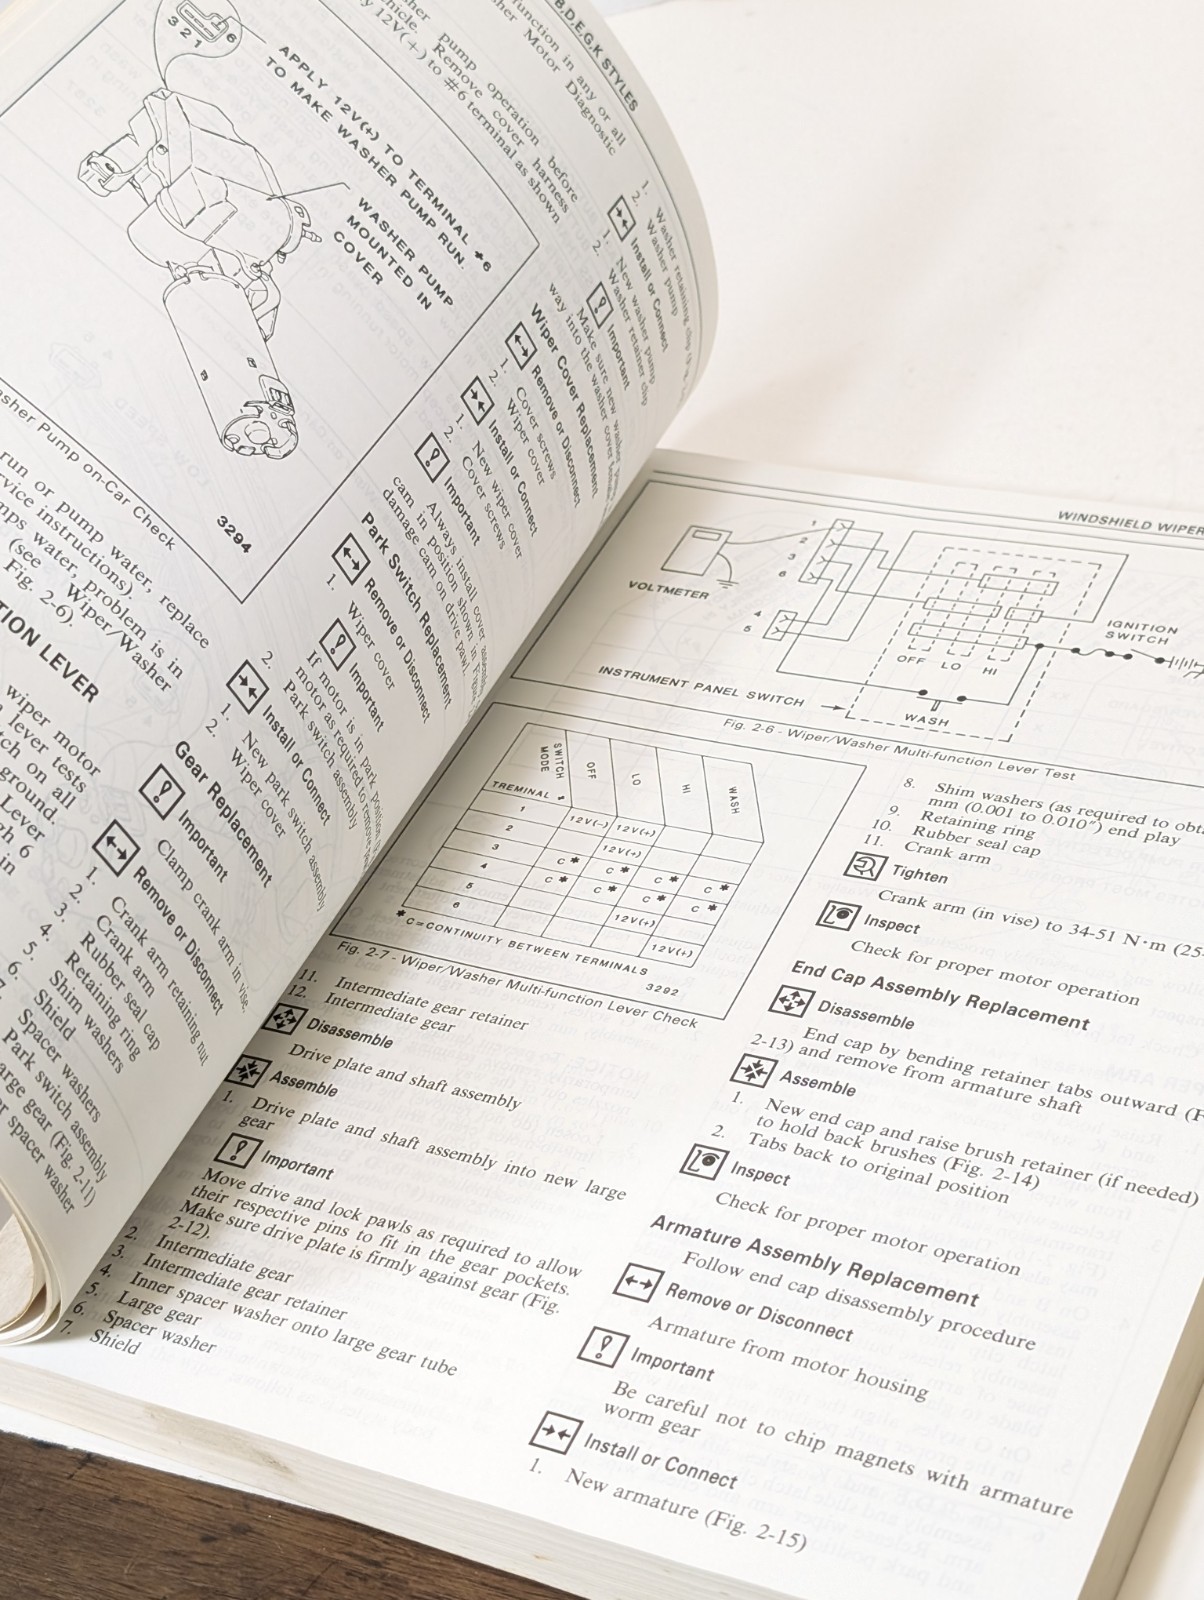 B,D,E,G,K STYLES
3 2 1
6
APPLY 12V(+) TO TERMINAL #6
TO MAKE WASHER PUMP RUN.
WASHER PUMP
MOUNTED IN
COVER
3294
Pump on-Car Check
run or pump water, replace
instructions).
water, problem is in
(see Wiper/Washer
Fig. 2-6).
LEVER
wiper motor
lever tests
on all
ground.
Lever
6
in
function in any or all
Motor Diagnostic
pump operation before
Remove cover harness
12V(+) to #6 terminal as shown
1. Washer retaining clip
2. Washer pump
Install or Connect
1. New washer pump
2. Washer retainer clip
Important
Make sure new washer
way into the washer cover
Wiper Cover Replacement
Remove or Disconnect
1. Cover screws
2. Wiper cover
Install or Connect
1. New wiper cover
2. Cover screws
Important
Always install cover
cam in position shown in
damage cam on drive pawl
Park Switch Replacement
Remove or Disconnect
1. Wiper cover
Important
If motor is in park position
motor as required to remove
2. Park switch assembly
Install or Connect
1. New park switch assembly
2. Wiper cover
Gear Replacement
Important
Clamp crank arm in vise.
Remove or Disconnect
1. Crank arm retaining nut
2. Crank arm
3. Rubber seal cap
4. Retaining ring
5. Shim washers
6. Shield
7. Spacer washers
Park switch assembly
gear (Fig. 2-11)
spacer washer
WINDSHIELD WIPER
VOLTMETER
1
2
3
6
4
5
OFF LO HI
IGNITION
SWITCH
INSTRUMENT PANEL SWITCH
WASH
Fig. 2-6 - Wiper/Washer Multi-function Lever Test
SWITCH
MODE
OFF LO HI WASH
TREMINAL #
1 12V(-) 12V(+)
2 12V(+)
3 C* C* C* C*
4 C* C* C* C*
5 12V(+)
6 12V(+)
*C=CONTINUITY BETWEEN TERMINALS
3292
Fig. 2-7 - Wiper/Washer Multi-function Lever Check
11. Intermediate gear retainer
12. Intermediate gear
Disassemble
Drive plate and shaft assembly
Assemble
1. Drive plate and shaft assembly into new large
gear
Important
Move drive and lock pawls as required to allow
their respective pins to fit in the gear pockets.
Make sure drive plate is firmly against gear (Fig.
2-12).
2. Intermediate gear
3. Intermediate gear retainer
4. Inner spacer washer onto large gear tube
5. Large gear
6. Spacer washer
7. Shield
8. Shim washers (as required to
mm (0.001 to 0.010") end play
9. Retaining ring
10. Rubber seal cap
11. Crank arm
Tighten
Crank arm (in vise) to 34-51 N·m (25-
Inspect
Check for proper motor operation
End Cap Assembly Replacement
Disassemble
End cap by bending retainer tabs outward
2-13) and remove from armature shaft
Assemble
1. New end cap and raise brush retainer (if needed)
to hold back brushes (Fig. 2-14)
2. Tabs back to original position
Inspect
Check for proper motor operation
Armature Assembly Replacement
Follow end cap disassembly procedure
Remove or Disconnect
Armature from motor housing
Important
Be careful not to chip magnets with armature
worm gear
Install or Connect
1. New armature (Fig. 2-15)